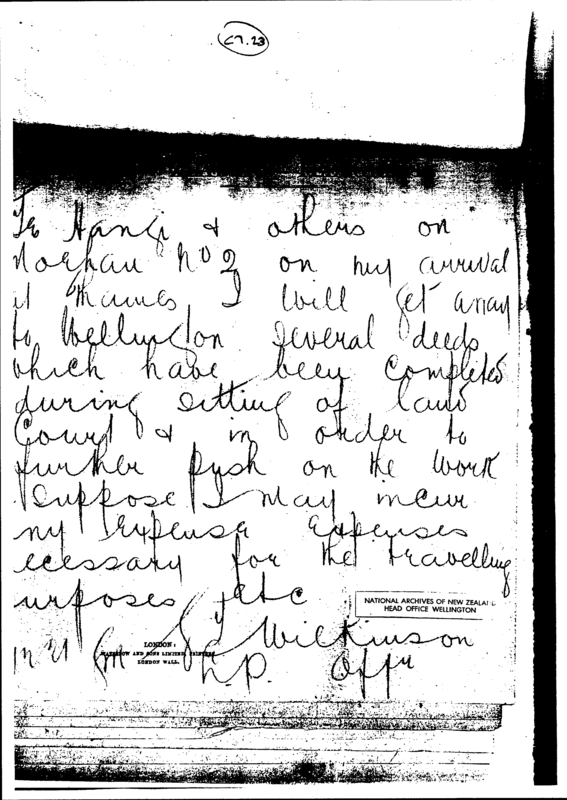 C7.23
Te Hangi & others on
No 2 on my arrival
at Thames I will get away
to Wellington several deeds
which have been completed
during sitting of land
Court & in order to
further push on the work
I suppose I may incur
ny expense expenses
ecessary for the travelling
urposes etc
NATIONAL ARCHIVES OF NEW ZEALAND
HEAD OFFICE WELLINGTON
Wilkinson
LONDON:
AND SONS LIMITED, PRINTERS
LONDON WALL.
L.P. Offr